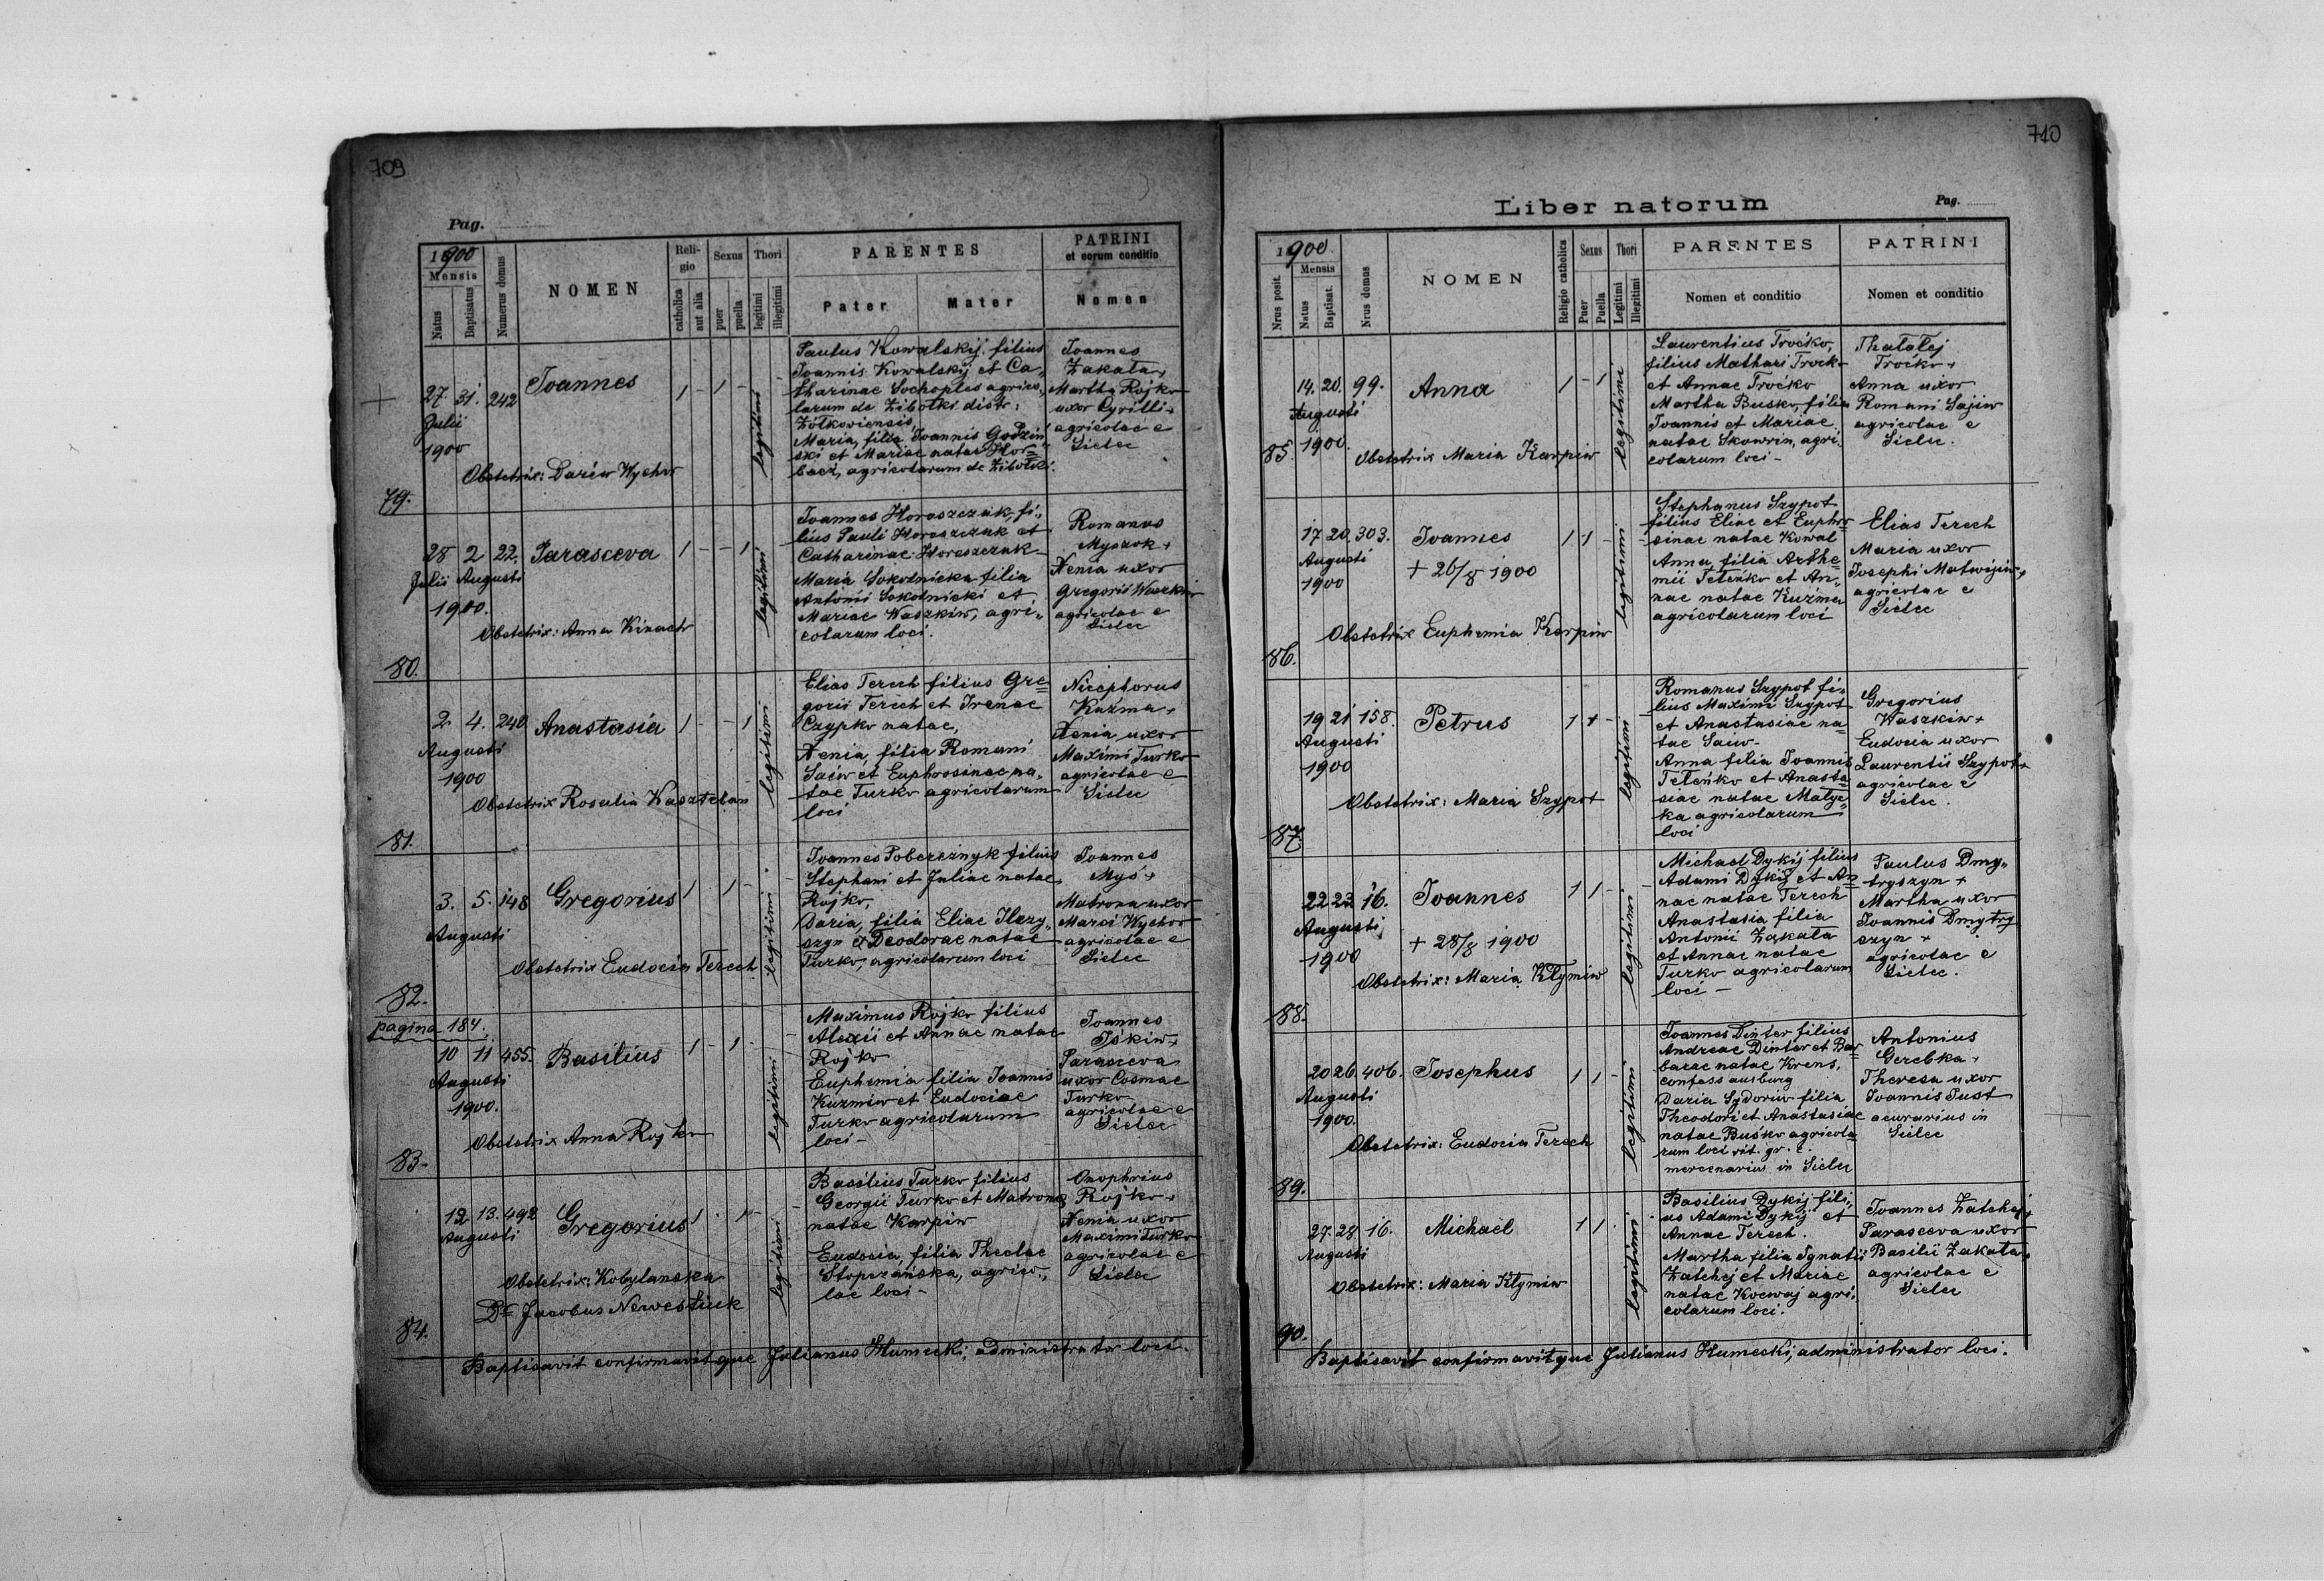 709
Pag.
1900
Mensis
Natus
Baptisatus
Numerus domus
NOMEN
Religio
catholica
aut alia
Sexus
puer
puella
Thori
legitimi
illegitimi
PARENTES
Pater
Mater
PATRINI
et eorum conditio
Nomen
27 31. 242
Julii
1900
Joannes
1 - 1 -
legitimi
Obstetrix: Daria Wychor
Paulus Kowalskij filius
Joannis Kowalskij et Ca„
tharinae Sochoples agrico„
larum de Zibołki distr:
Żółkoviensis,
Maria, filia Joannis Godzin
ski et Mariae natae Hor=
bacz, agricolarum de Zibołki.
Joannes
Zakala+
Martha Rojko
uxor Cyrilli+
agricolae e
Sielec
79.
28 2 22.
Julii Augusti
1900.
Parasceva
1 - - 1
legitimi
Obstetrix: Anna Kinach
Joannes Horoszczak, fi„
lius Pauli Horoszczak et
Catharinae Horoszczak
Maria Sokolnicka filia
Antonii Sokolnicki et
Mariae Waszkiw, agri„
colarum loci.
Romanus
Myszok+
Xenia uxor
Gregorii Waszkiw
agricolae e
Sielec
80.
2. 4. 240.
Augusti
1900
Anastasia
1 - - 1
legitimi
Obstetrix Rosalia Kasztelan
Elias Terech filius Gre=
gorii Terech et Irenae
Czypko natae,
Xenia, filia Romani
Saiw et Euphrosinae na„
tae Turko agricolarum
loci
Nicephorus
Kuzma+
Xenia uxor
Maximi Turko
agricolae e
Sielec
81.
3. 5. 148
Augusti
Gregorius
1 1 -
legitimi
Obstetrix Eudocia Terech
Joannes Pobereżnyk filius
Stephani et Juliae natae
Rojko,
Daria, filia Eliae Ilczy„
szyn et Teodorae natae
Turko, agricolarum loci
Joannes
Myś+
Matrona uxor
Marci Wychor
agricolae e
Sielec
82.
pagina 184.
10 11 455.
Augusti
1900.
Basilius
1 - 1 -
legitimi
Obstetrix Anna Rojko
Maximus Rojko filius
Alexii et Annae natae
Rojko
Euphemia filia Joannis
Kuzmiw et Eudociae
Turko agricolarum
loci -
Joannes
Iśkiw+
Parasceva
uxor Cosmae
Turko
agricolae e
Sielec
83.
12 13. 492
Augusti
Gregorius
1 . 1 -
legitimi
Obstetrix: Kobylanska
Dr Jacobus Newestiuk
Basilius Turko filius
Georgii Turko et Matronae
natae Karpiw
Eudocia, filia Theclae
Stopczańska, agrico„
lae loci -
Onophrius
Rojko+
Xenia uxor
Maximi Turko
agricolae e
Sielec
84.
Baptisavit confirmavitque Julianus Kumecki, administrator loci.
710
Liber natorum
Pag.
1900.
Nrus posit.
Mensis
Natus
Baptisat.
Nrus domus
NOMEN
Religio catholica
Sexus
Puer
Puella
Thori
Legitimi
Illegitimi
PARENTES
Nomen et conditio
PATRINI
Nomen et conditio
14. 20. 99.
Augusti
1900.
Anna
1 - 1
legitimi
85.
Obstetrix Maria Karpiw
Laurentius Troćko,
filius Mathaei Troćko
et Annae Troćko
Martha Busko, filia
Joannis et Mariae
natae Skowrin, agri„
colarum loci -
Thalalej
Troćko+
Anna uxor
Romani Sajiw
agricolae e
Sielec.
17 20. 303.
Augusti
1900
Joannes
+ 26/8 1900
1 1 -
legitimi
Obstetrix Euphemia Karpiw
86.
Stephanus Szypot
filius Eliae et Euphro=
sinae natae Kowal
Anna filia Arthe=
mii Teleńko et An„
nae natae Kuźma
agricolarum loci
Elias Terech
Maria uxor
Josephi Matwijiw+
agricolae e
Sielec
19 21 158.
Augusti
1900
Petrus
1 + -
legitimi
Obstetrix: Maria Szypot
87.
Romanus Szypot fi„
lius Maximi Szypot
et Anastasiae na=
tae Saiw-
Anna filia Joannis
Teleńko et Anasta=
siae natae Małyc„
ka agricolarum
loci
Gregorius
Waszkiw+
Eudocia uxor
Laurentii Szypot+
agricolae e
Sielec.
22 23 16.
Augusti
1900
Joannes
+ 28/8 1900
1 1 -
legitimi
Obstetrix: Maria Kłymiw
88.
Michael Dykij filius
Adami Dykij et An=
nae natae Terech
Anastasia filia
Antonii Zakala
et Annae natae
Turko agricolarum
loci -
Paulus Dmy„
tryszyn +
Martha uxor
Joannis Dmytry
szyn +
agricolae e
Sielec.
20 26. 406.
Augusti
1900.
Josephus
1 1 -
legitimi
Obstetrix: Eudocia Terech
89.
Joannes Dinter filius
Andreae Dinter et Bar=
barae natae Krens,
confess ausburg
Daria Sydoriw filia
Theodori et Anastasiae
natae Buśko agricola=
rum loci rit. gr. c.
mercenarius in Sielec
Antonius
Gerebka+
Theresa uxor
Joannis Just
acurarius in
Sielec
27. 28. 16.
Augusti
Michael
1 1 .
legitimi
Obstetrix: Maria Kłymiw
90.
Basilius Dykij fili„
us Adami Dykij et
Annae Terech.
Martha filia Ignatii
Zatchej et Mariae
natae Kocwaj agri„
colarum loci.
Joannes Zatchej+
Parasceva uxor
Basilii Zakala+
agricolae e
Sielec
Baptisavit confirmavitque Julianus Kumecki, administrator loci.